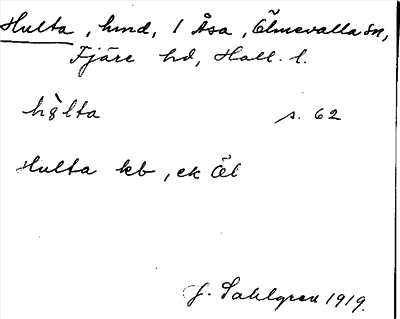 Hulta, hmd, 1 Åsa, Ölmevalla sn,
Fjäre hd, Hall. l.
hỳlta s. 62
Hulta kb, ek Öl
J. Sahlgren 1919.